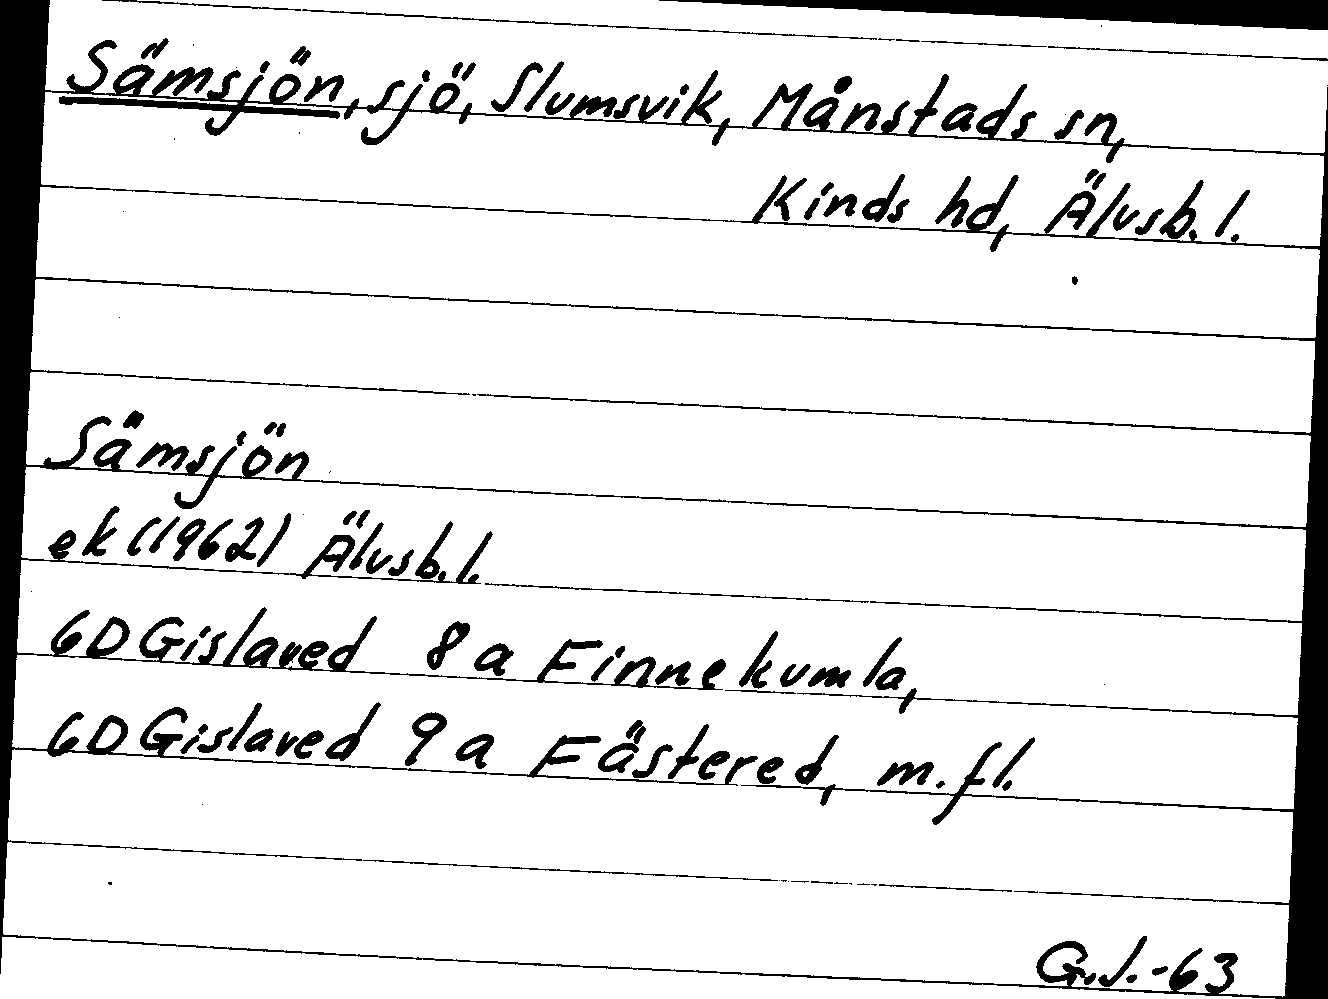 Sämsjön, sjö, Slumsvik, Månstads sn,
Kinds hd, Älvsb. l.
Sämsjön
ek (1962) Älvsb. l.
6D Gislaved 8 a Finnekumla,
6D Gislaved 9 a Fästered, m. fl.
G.J.-63